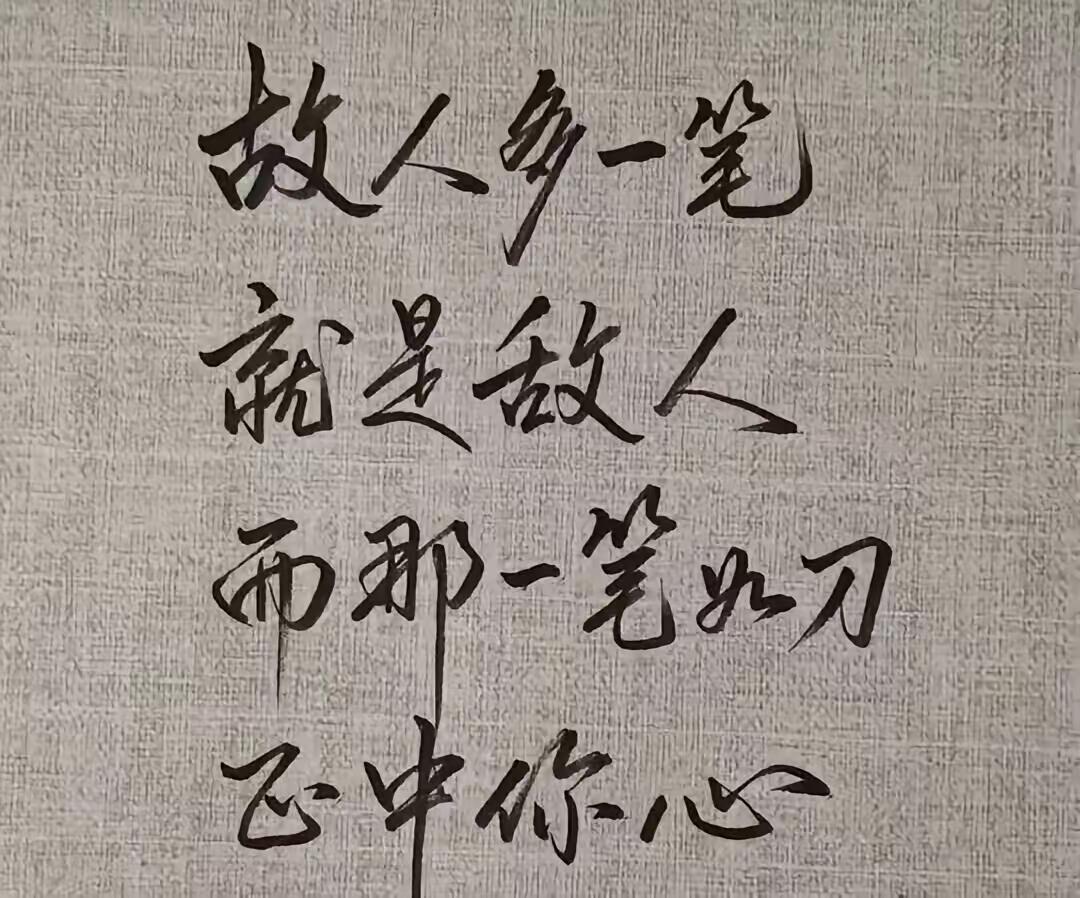 故人多一笔
就是敌人
而那一笔如刀
正中你心